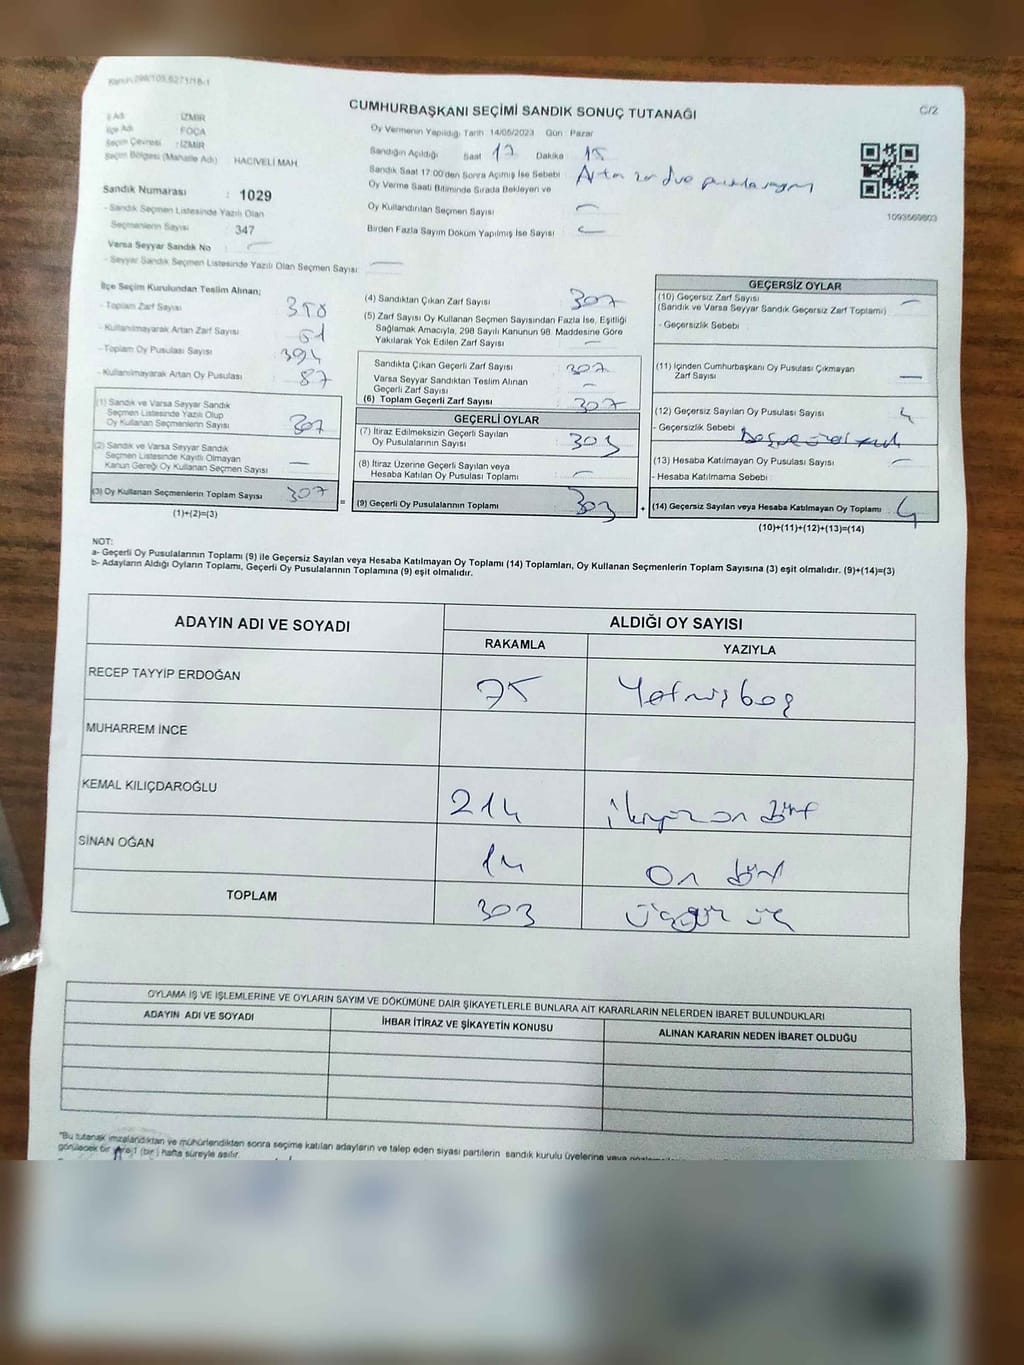 Kanun 298/105,6271/18-1
CUMHURBAŞKANI SEÇİMİ SANDIK SONUÇ TUTANAĞI
C/2
İl Adı İZMİR
İlçe Adı FOÇA
Seçim Çevresi : İZMİR
Seçim Bölgesi (Mahalle Adı) HACIVELİ MAH
Sandık Numarası : 1029
- Sandık Seçmen Listesinde Yazılı Olan
Seçmenlerin Sayısı 347
Varsa Seyyar Sandık No —
- Seyyar Sandık Seçmen Listesinde Yazılı Olan Seçmen Sayısı: —
Oy Vermenin Yapıldığı Tarih :14/05/2023 Gün : Pazar
Sandığın Açıldığı Saat 17 Dakika 15
Sandık Saat 17:00'den Sonra Açımış İse Sebebi Artan zarf
Oy Verme Saati Bitiminde Sırada Bekleyen ve
Oy Kullandırılan Seçmen Sayısı —
Birden Fazla Sayım Döküm Yapılmış İse Sayısı —
1093569803
İlçe Seçim Kurulundan Teslim Alınan;
- Toplam Zarf Sayısı
- Kullanılmayarak Artan Zarf Sayısı
- Toplam Oy Pusulası Sayısı 394
- Kullanılmayarak Artan Oy Pusulası 87
(1) Sandık ve Varsa Seyyar Sandık
Seçmen Listesinde Yazılı Olup
Oy Kullanan Seçmenlerin Sayısı 307
(2) Sandık ve Varsa Seyyar Sandık
Seçmen Listesinde Kayıtlı Olmayan
Kanun Gereği Oy Kullanan Seçmen Sayısı —
(3) Oy Kullanan Seçmenlerin Toplam Sayısı 307
(1)+(2)=(3)
=
(4) Sandıktan Çıkan Zarf Sayısı 307
(5) Zarf Sayısı Oy Kullanan Seçmen Sayısından Fazla İse, Eşitliği
Sağlamak Amacıyla, 298 Sayılı Kanunun 98. Maddesine Göre
Yakılarak Yok Edilen Zarf Sayısı —
Sandıkta Çıkan Geçerli Zarf Sayısı 307
Varsa Seyyar Sandıktan Teslim Alınan
Geçerli Zarf Sayısı —
(6) Toplam Geçerli Zarf Sayısı 307
GEÇERLİ OYLAR
(7) İtiraz Edilmeksizin Geçerli Sayılan
Oy Pusulalarının Sayısı 303
(8) İtiraz Üzerine Geçerli Sayılan veya
Hesaba Katılan Oy Pusulası Toplamı —
(9) Geçerli Oy Pusulalarının Toplamı 303
+
GEÇERSİZ OYLAR
(10) Geçersiz Zarf Sayısı —
(Sandık ve Varsa Seyyar Sandık Geçersiz Zarf Toplamı)
- Geçersizlik Sebebi
(11) İçinden Cumhurbaşkanı Oy Pusulası Çıkmayan
Zarf Sayısı —
(12) Geçersiz Sayılan Oy Pusulası Sayısı 4
- Geçersizlik Sebebi
(13) Hesaba Katılmayan Oy Pusulası Sayısı —
- Hesaba Katılmama Sebebi
(14) Geçersiz Sayılan veya Hesaba Katılmayan Oy Toplamı 4
(10)+(11)+(12)+(13)=(14)
NOT:
a- Geçerli Oy Pusulalarının Toplamı (9) ile Geçersiz Sayılan veya Hesaba Katılmayan Oy Toplamı (14) Toplamları, Oy Kullanan Seçmenlerin Toplam Sayısına (3) eşit olmalıdır. (9)+(14)=(3)
b- Adayların Aldığı Oyların Toplamı, Geçerli Oy Pusulalarının Toplamına (9) eşit olmalıdır.
ADAYIN ADI VE SOYADI
ALDIĞI OY SAYISI
RAKAMLA YAZIYLA
RECEP TAYYİP ERDOĞAN 75 Yetmişbeş
MUHARREM İNCE
KEMAL KILIÇDAROĞLU 214 ikiyüz on dört
SİNAN OĞAN 14 On dört
TOPLAM 303 üçyüz üç
OYLAMA İŞ VE İŞLEMLERİNE VE OYLARIN SAYIM VE DÖKÜMÜNE DAİR ŞİKAYETLERLE BUNLARA AİT KARARLARIN NELERDEN İBARET BULUNDUKLARI
ADAYIN ADI VE SOYADI İHBAR İTİRAZ VE ŞİKAYETİN KONUSU ALINAN KARARIN NEDEN İBARET OLDUĞU
"Bu tutanak imzalandıktan ve mühürlendikten sonra seçime katılan adayların ve talep eden siyasi partilerin sandık kurulu üyelerine veya
görülecek bir yere 1 (bir) hafta süreyle asılır.